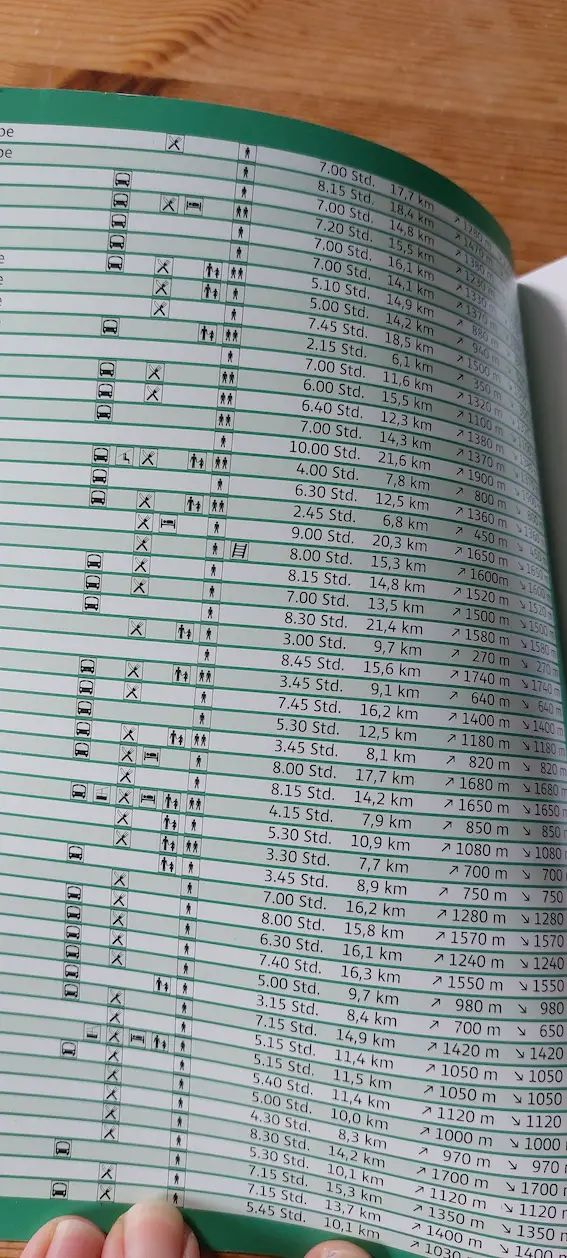 7.00 Std. 17,7 km ↗ 1280 m
8.15 Std. 18,4 km ↗
7.00 Std. 14,8 km ↗
7.20 Std. 15,5 km ↗ 1230 m
7.00 Std. 16,1 km ↗ 1330 m
7.00 Std. 14,1 km ↗ 1370 m
5.10 Std. 14,9 km ↗ 880 m
5.00 Std. 14,2 km ↗ 940 m
7.45 Std. 18,5 km ↗ 1500 m
2.15 Std. 6,1 km ↗ 350 m
7.00 Std. 11,6 km ↗ 1320 m
6.00 Std. 15,5 km ↗ 1100 m
6.40 Std. 12,3 km ↗ 1380 m
7.00 Std. 14,3 km ↗ 1370 m
10.00 Std. 21,6 km ↗ 1900 m
4.00 Std. 7,8 km ↗ 800 m
6.30 Std. 12,5 km ↗ 1360 m ↘ 1360
2.45 Std. 6,8 km ↗ 450 m ↘
9.00 Std. 20,3 km ↗ 1650 m ↘ 1650
8.00 Std. 15,3 km ↗ 1600m ↘ 1600
8.15 Std. 14,8 km ↗ 1520 m ↘ 1520
7.00 Std. 13,5 km ↗ 1500 m ↘ 1500
8.30 Std. 21,4 km ↗ 1580 m ↘ 1580
3.00 Std. 9,7 km ↗ 270 m ↘ 270
8.45 Std. 15,6 km ↗ 1740 m ↘ 1740
3.45 Std. 9,1 km ↗ 640 m ↘ 640
7.45 Std. 16,2 km ↗ 1400 m ↘ 1400
5.30 Std. 12,5 km ↗ 1180 m ↘ 1180
3.45 Std. 8,1 km ↗ 820 m ↘ 820
8.00 Std. 17,7 km ↗ 1680 m ↘ 1680
8.15 Std. 14,2 km ↗ 1650 m ↘ 1650
4.15 Std. 7,9 km ↗ 850 m ↘ 850
5.30 Std. 10,9 km ↗ 1080 m ↘ 1080
3.30 Std. 7,7 km ↗ 700 m ↘ 700
3.45 Std. 8,9 km ↗ 750 m ↘ 750
7.00 Std. 16,2 km ↗ 1280 m ↘ 1280
8.00 Std. 15,8 km ↗ 1570 m ↘ 1570
6.30 Std. 16,1 km ↗ 1240 m ↘ 1240
7.40 Std. 16,3 km ↗ 1550 m ↘ 1550
5.00 Std. 9,7 km ↗ 980 m ↘ 980
3.15 Std. 8,4 km ↗ 700 m ↘ 650
7.15 Std. 14,9 km ↗ 1420 m ↘ 1420
5.15 Std. 11,4 km ↗ 1050 m ↘ 1050
5.15 Std. 11,5 km ↗ 1050 m ↘ 1050
5.40 Std. 11,4 km ↗ 1120 m ↘ 1120
5.00 Std. 10,0 km ↗ 1000 m ↘ 1000
4.30 Std. 8,3 km ↗ 970 m ↘ 970
8.30 Std. 14,2 km ↗ 1700 m ↘ 1700
5.30 Std. 10,1 km ↗ 1120 m ↘ 1120
7.15 Std. 15,3 km ↗ 1350 m ↘ 1350
7.15 Std. 13,7 km ↗ 1400 m ↘ 1400
5.45 Std. 10,1 km ↗ 1030